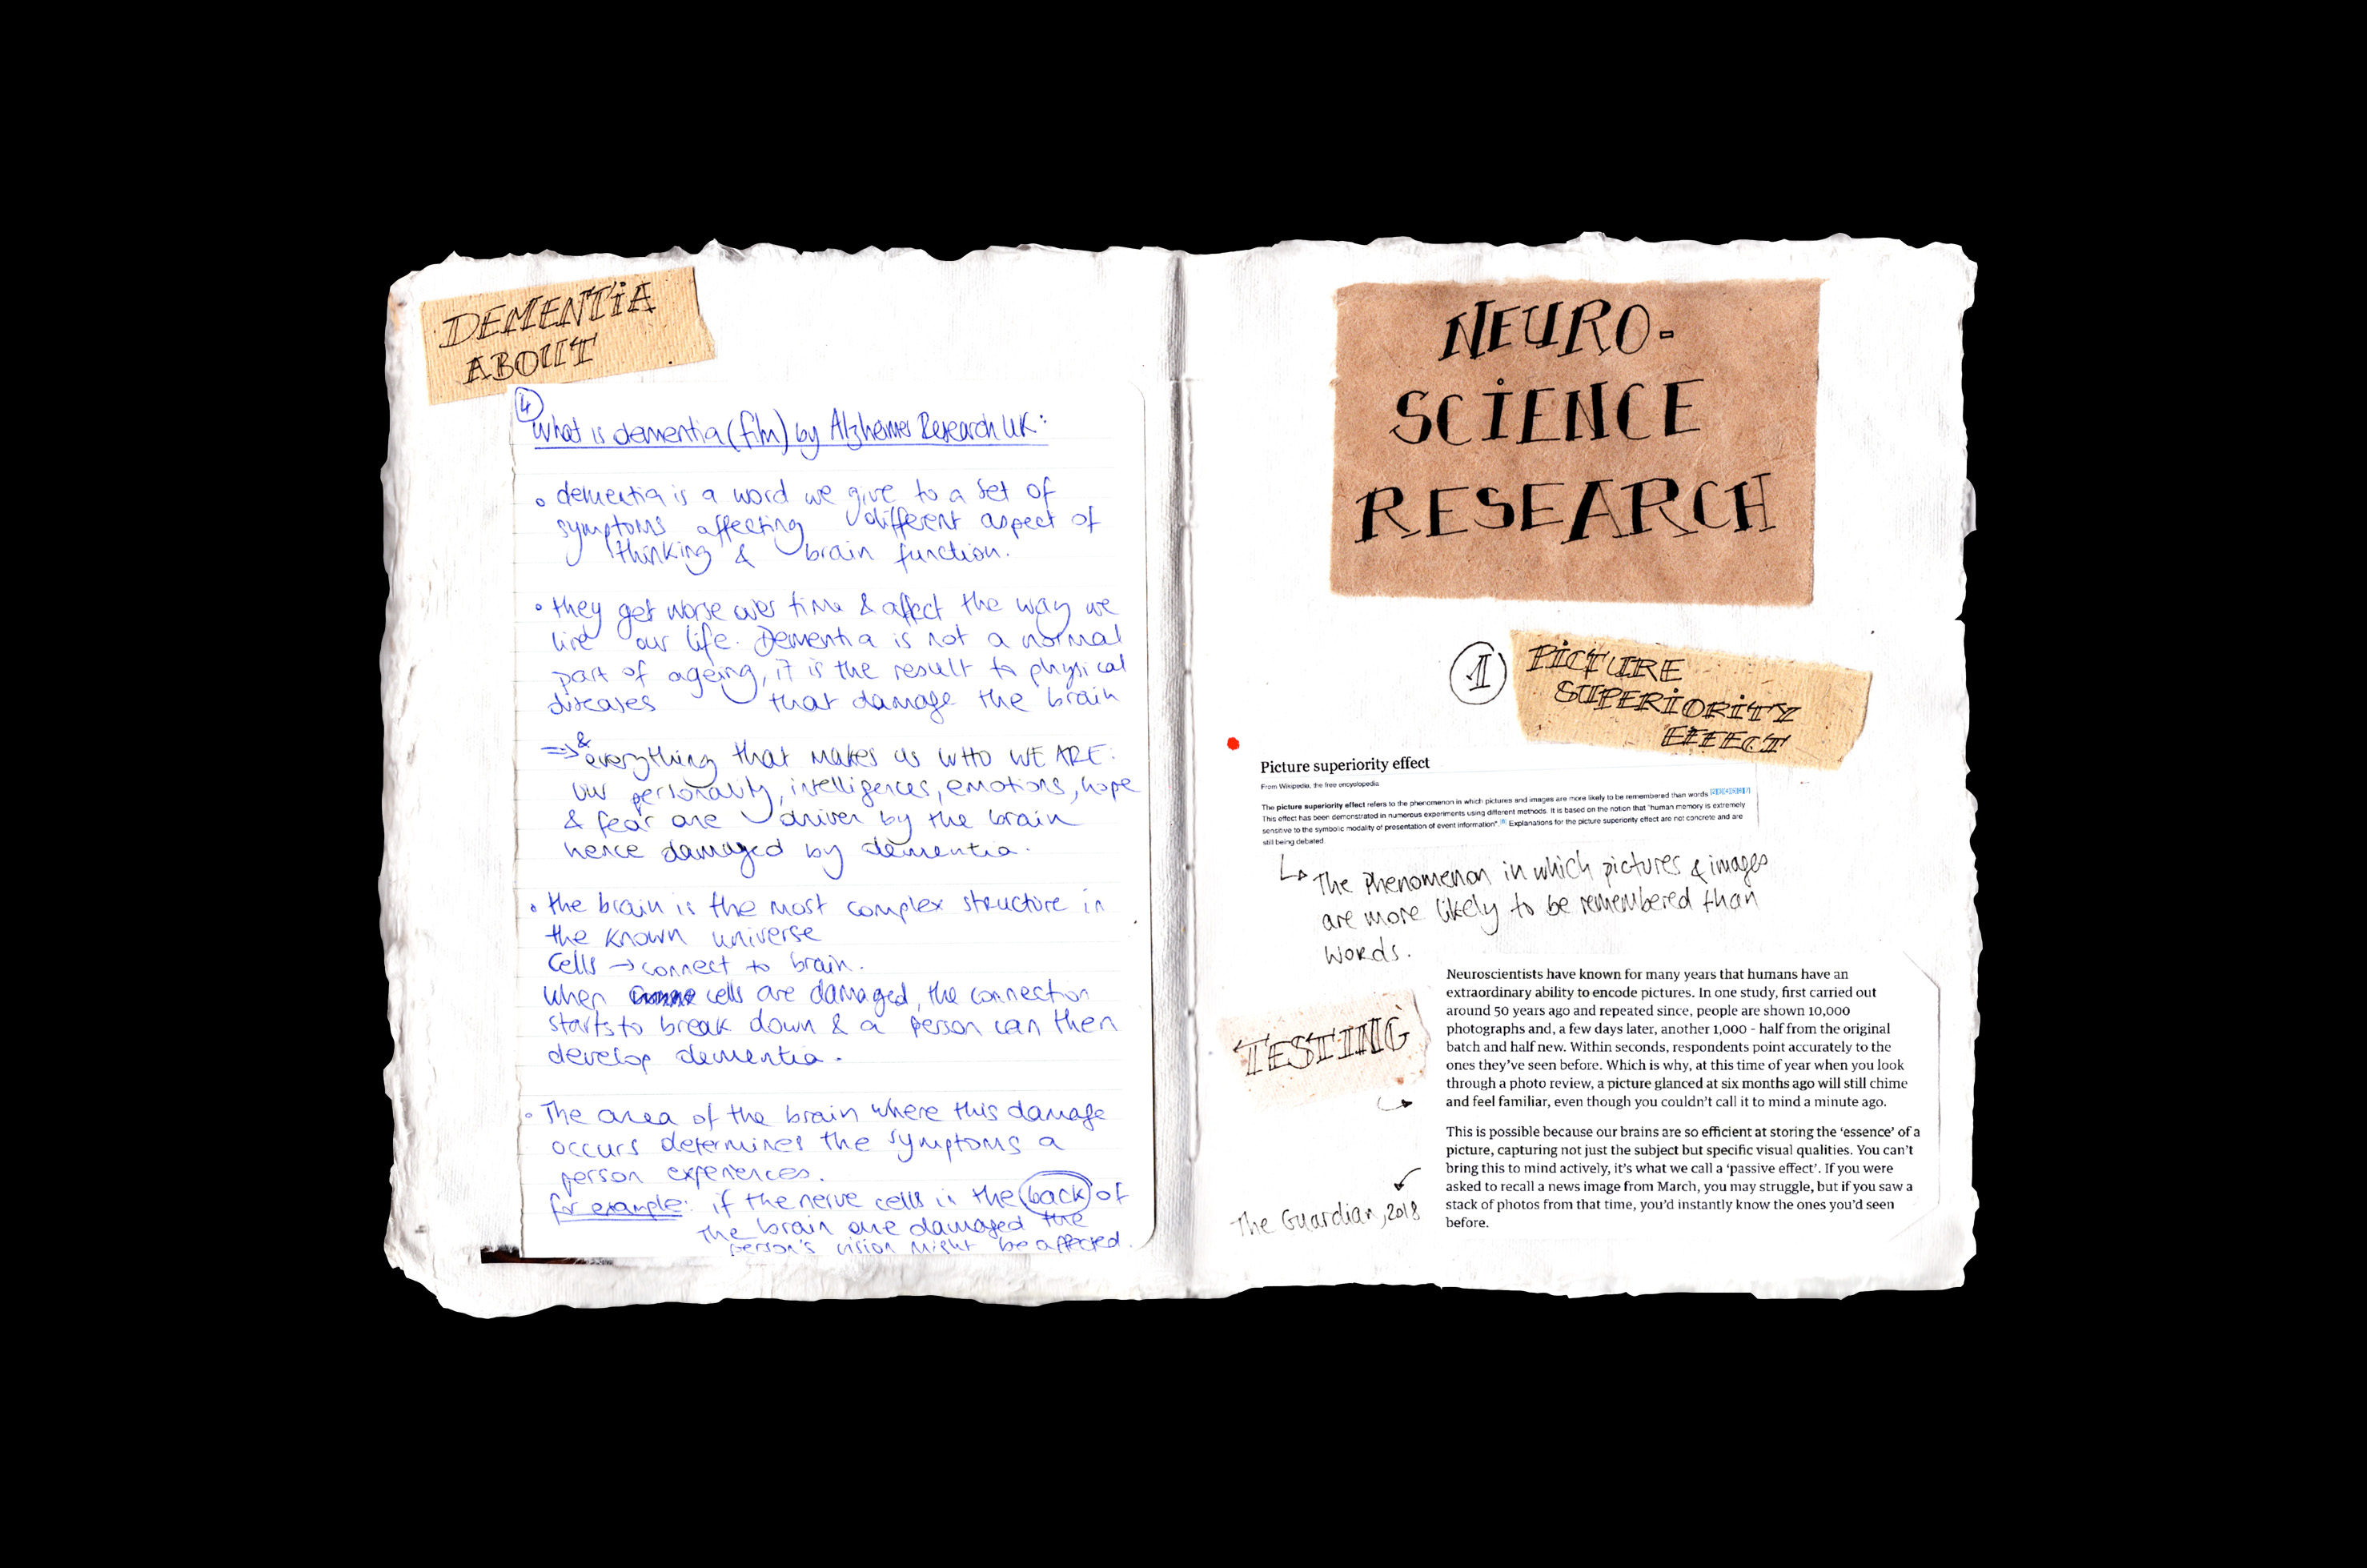 DEMENTIA
ABOUT
4
What is dementia (film) by Alzheimer Research UK:
◦ dementia is a word we give to a set of
symptoms affecting different aspect of
thinking & brain function.
• they get worse over time & affect the way we
live our life. Dementia is not a normal
part of ageing, it is the result to physical
diseases that damage the brain
=> & everything that makes us WHO WE ARE:
our personality, intelligences, emotions, hope
& fear are driven by the brain
hence damaged by dementia.
• the brain is the most complex structure in
the known universe
Cells → connect to brain.
when cells are damaged, the connection
starts to break down & a person can then
develop dementia.
◦ The area of the brain where this damage
occurs determines the symptoms a
person experiences.
for example: if the nerve cells in the back of
the brain are damaged the
person's vision might be affected.
NEURO-
SCIENCE
RESEARCH
1
PICTURE
SUPERIORITY
EFFECT
Picture superiority effect
From Wikipedia, the free encyclopedia
The picture superiority effect refers to the phenomenon in which pictures and images are more likely to be remembered than words.[2][3][4][5][6][7]
This effect has been demonstrated in numerous experiments using different methods. It is based on the notion that "human memory is extremely
sensitive to the symbolic modality of presentation of event information".[8] Explanations for the picture superiority effect are not concrete and are
still being debated.
↳ The phenomenon in which pictures & images
are more likely to be remembered than
words.
TESTING
Neuroscientists have known for many years that humans have an
extraordinary ability to encode pictures. In one study, first carried out
around 50 years ago and repeated since, people are shown 10,000
photographs and, a few days later, another 1,000 - half from the original
batch and half new. Within seconds, respondents point accurately to the
ones they've seen before. Which is why, at this time of year when you look
through a photo review, a picture glanced at six months ago will still chime
and feel familiar, even though you couldn't call it to mind a minute ago.
This is possible because our brains are so efficient at storing the 'essence' of a
picture, capturing not just the subject but specific visual qualities. You can't
bring this to mind actively, it's what we call a 'passive effect'. If you were
asked to recall a news image from March, you may struggle, but if you saw a
stack of photos from that time, you'd instantly know the ones you'd seen
before.
The Guardian, 2018